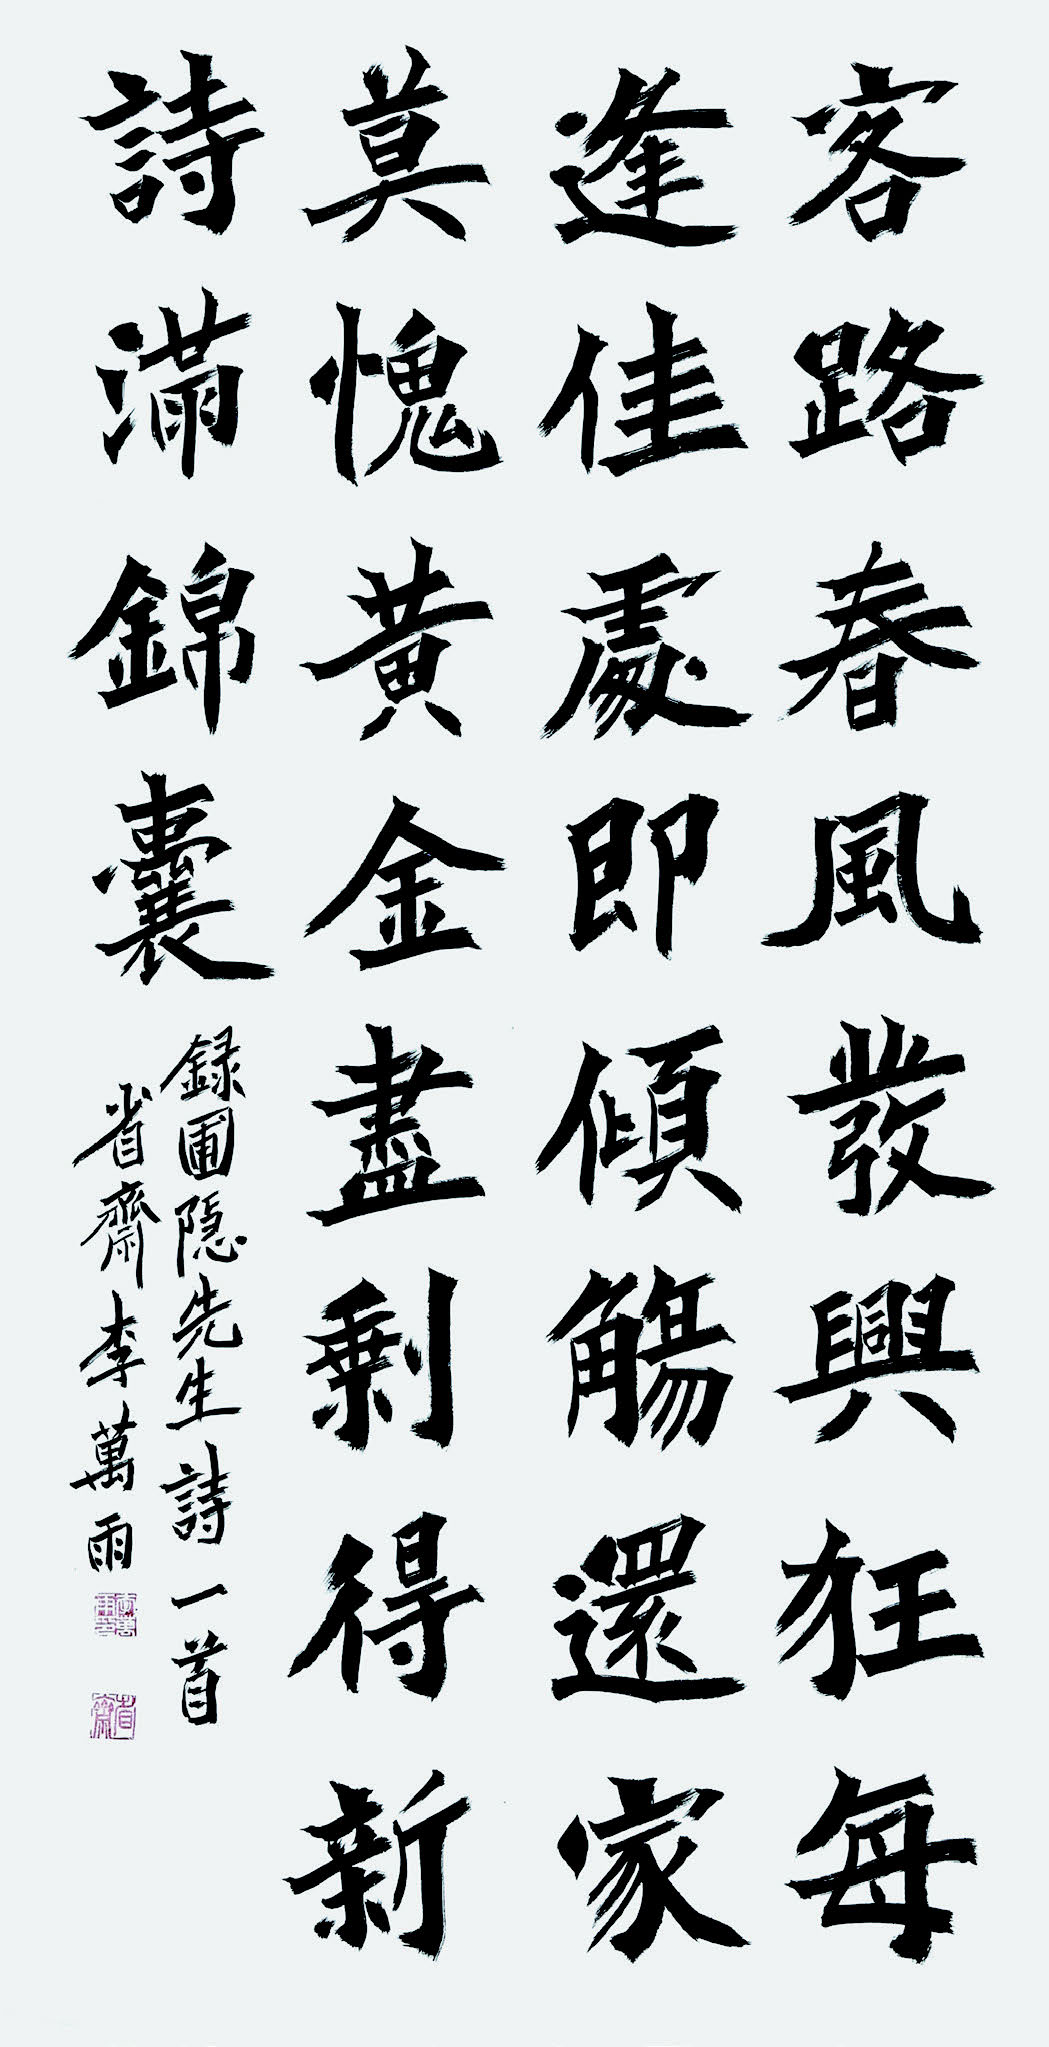 客路春風發興狂每
逢佳處即傾觴還家
莫愧黃金盡剩得新
詩滿錦囊
録圃隱先生詩一首
省齋李萬雨
李萬雨印
省齋